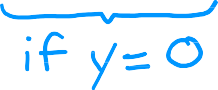 if y = 0